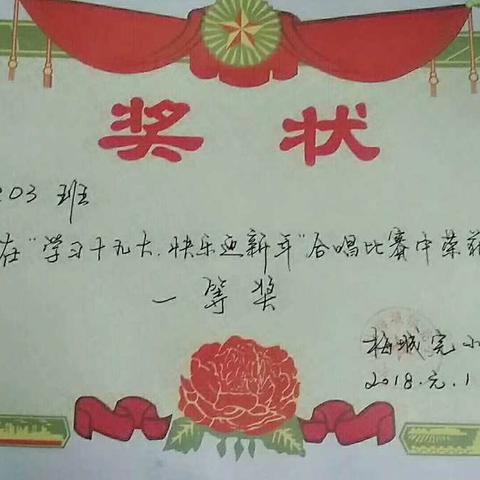 奖状
203 班
在“学习十九大.快乐迎新年”合唱比赛中荣获
一等奖
梅城完小
2018.元.1